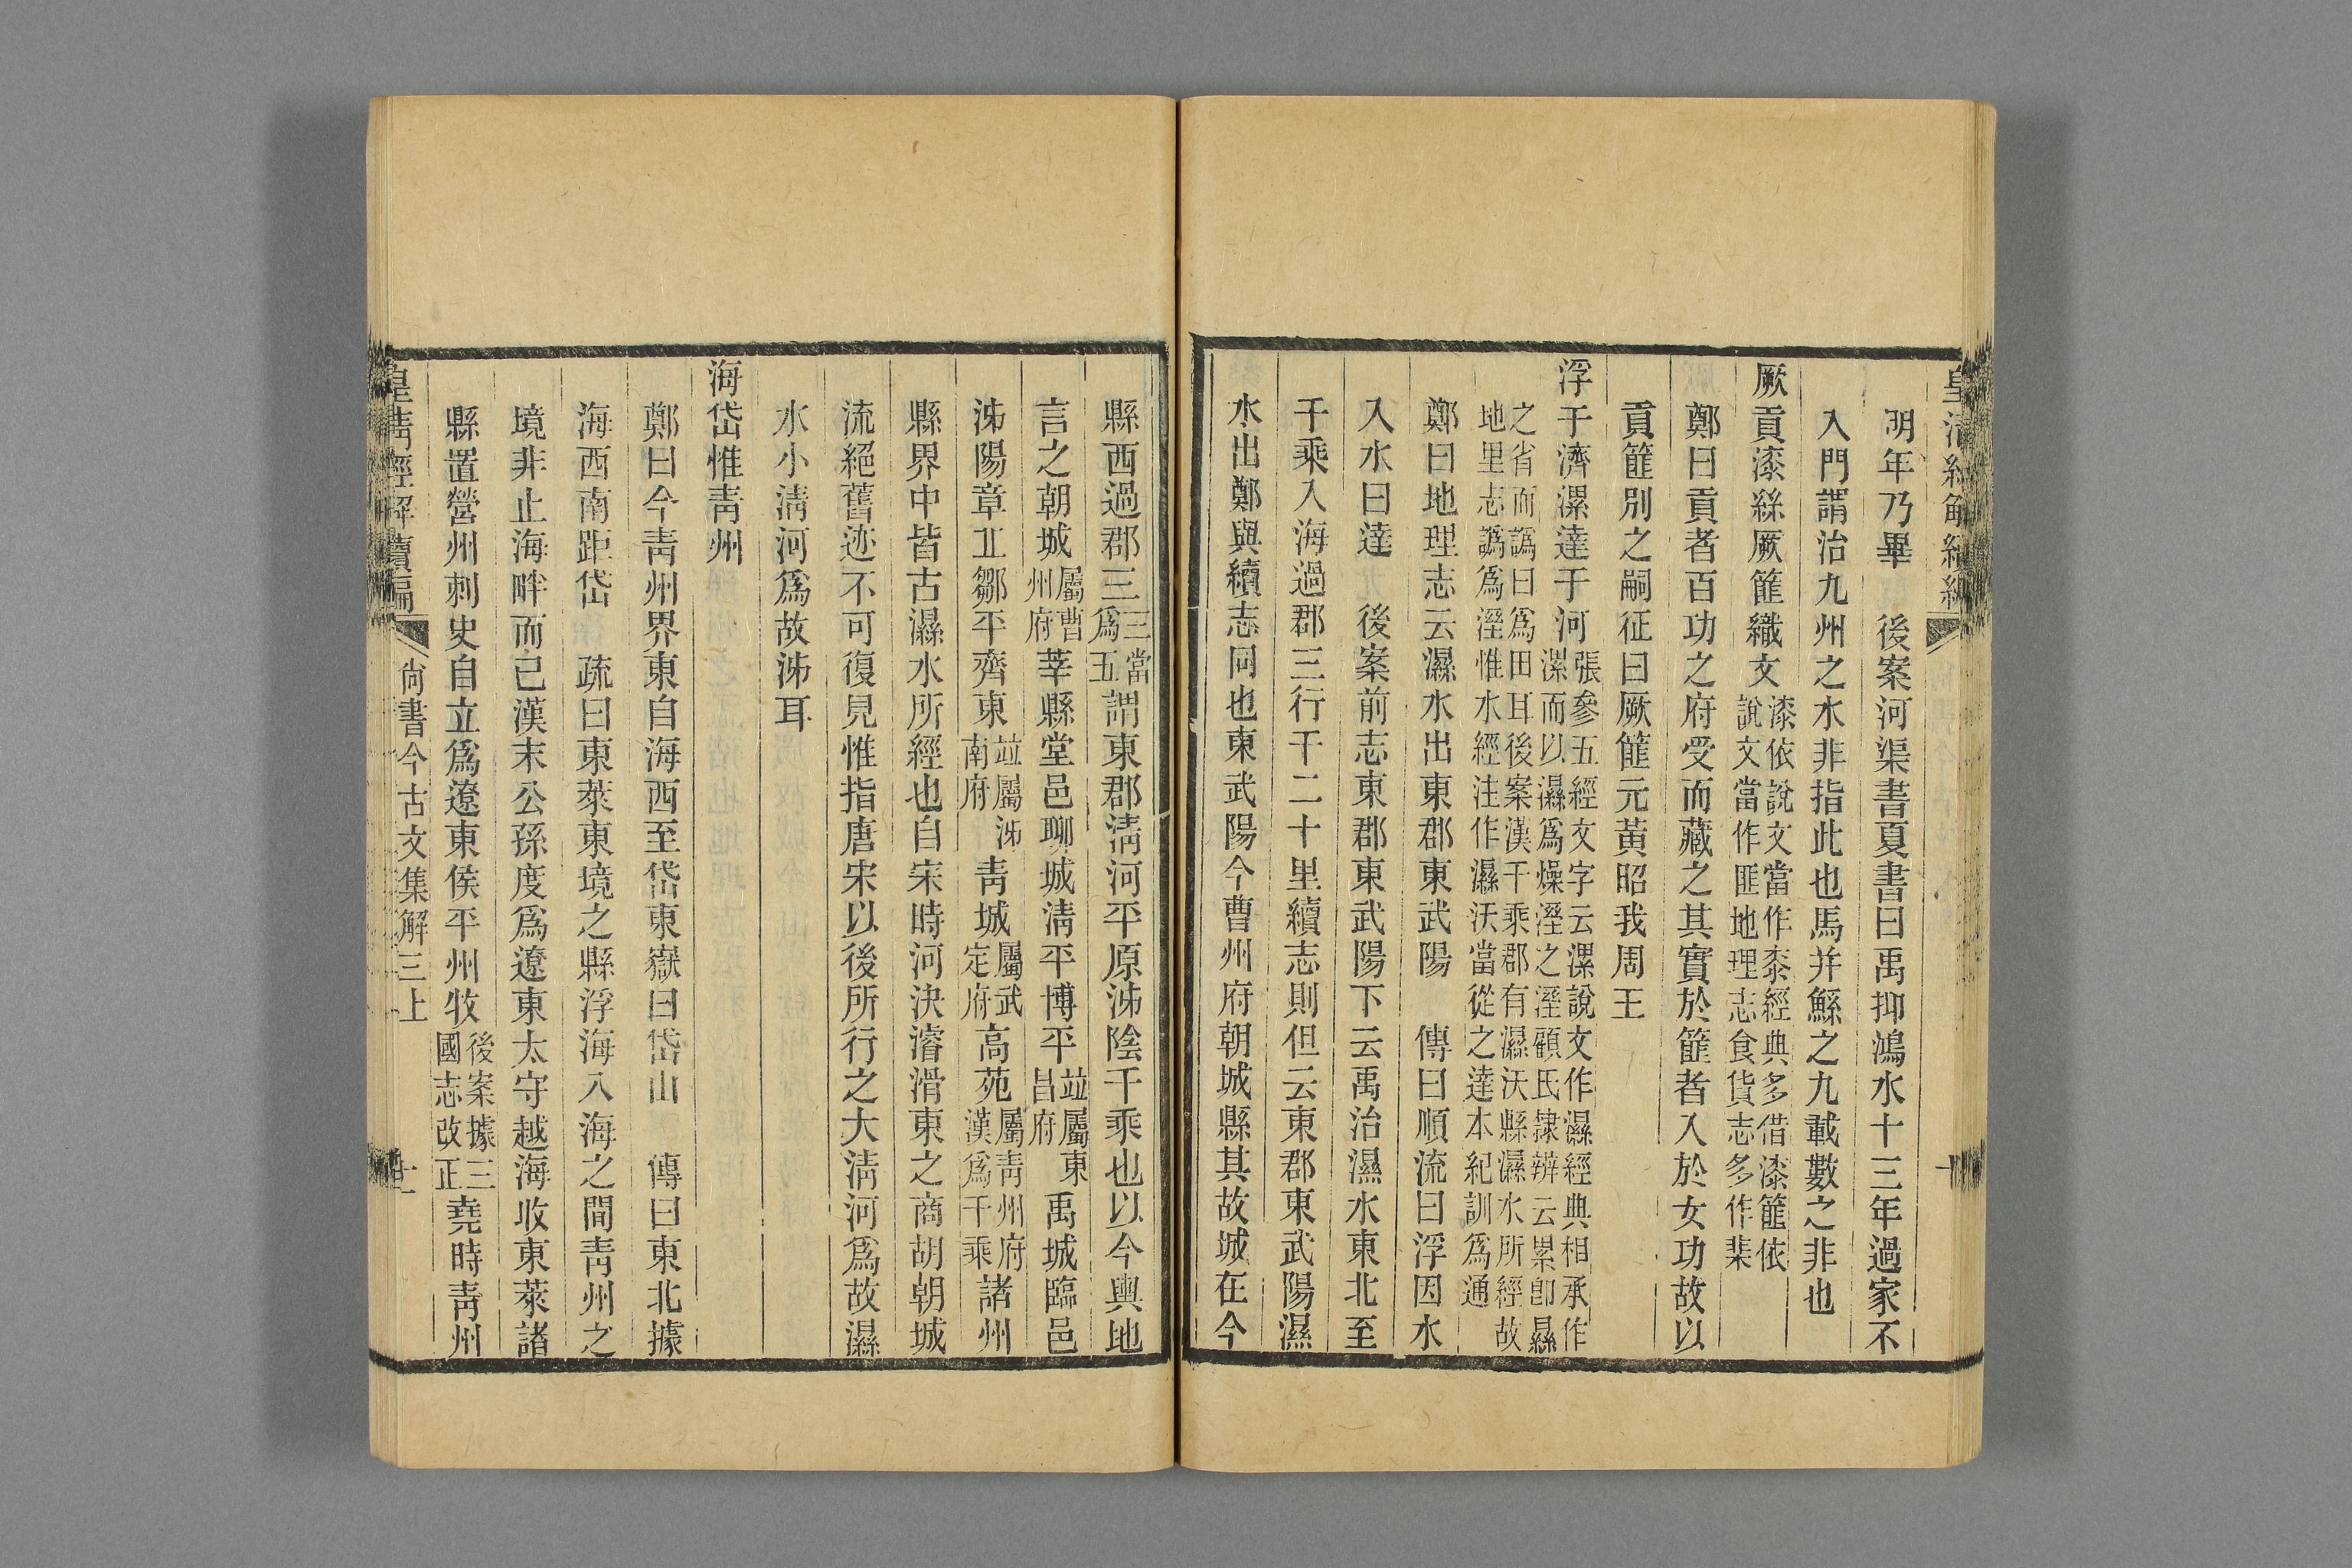 皇清經解續編
明年乃畢　後案河渠書夏書曰禹抑鴻水十三年過家不
入門謂治九州之水非指此也馬并鯀之九載數之非也
厥貢漆絲厥篚織文漆依說文當作桼經典多借漆篚依
說文當作匪地理志食貨志多作棐
鄭曰貢者百功之府受而藏之其實於篚者入於女功故以
貢篚別之嗣征曰厥篚元黃昭我周王
浮于濟漯達于河張參五經文字云漯說文作濕經典相承作
漯而以濕爲燥溼之溼顧氏隸辨云累卽㬎
之省而譌曰爲田耳後案漢千乘郡有濕沃縣濕水所經故
地里志譌爲溼惟水經注作濕沃當從之達本紀訓爲通
鄭曰地理志云濕水出東郡東武陽　傳曰順流曰浮因水
入水曰達　後案前志東郡東武陽下云禹治濕水東北至
千乘入海過郡三行千二十里續志則但云東郡東武陽濕
水出鄭與續志同也東武陽今曹州府朝城縣其故城在今
縣西過郡三三當
爲五謂東郡清河平原泲陰千乘也以今輿地
言之朝城屬曹
州府莘縣堂邑聊城清平博平竝屬東
昌府禹城臨邑
泲陽章丘鄒平齊東竝屬泲
南府青城屬武
定府高苑屬青州府
漢爲千乘諸州
縣界中皆古濕水所經也自宋時河決濬滑東之商胡朝城
流絕舊迹不可復見惟指唐宋以後所行之大清河爲故濕
水小清河爲故泲耳
海岱惟青州
鄭曰今青州界東自海西至岱東嶽曰岱山　傳曰東北據
海西南距岱　疏曰東萊東境之縣浮海入海之間青州之
境非止海畔而已漢末公孫度爲遼東太守越海收東萊諸
縣置營州刺史自立爲遼東侯平州牧後案據三
國志改正堯時青州
皇清經解續編　尚書今古文集解三上